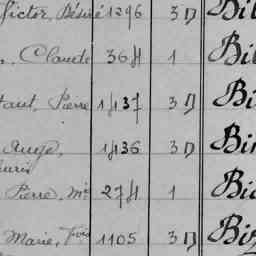 Victor, Désiré 1296 3 D Bil
, Claude 364 1 Bil
taut, Pierre 1437 3 D Bi
Ange, 1436 3 D Bin
Pierre, Mie 274 1 Bi
Marie, Fois 1105 3 D Bi